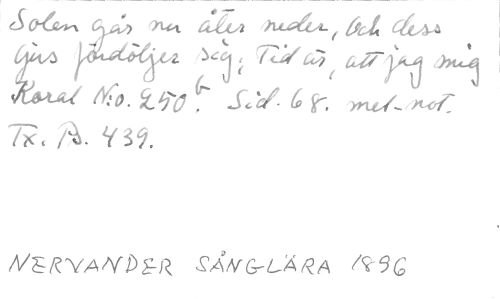 Solen går nu åter neder, Och dess
ljus fördöljer sig; Tid är, att jag mig
Koral N:o. 250.b Sid. 68. mel-not.
Tx. Ps. 439.
NERVANDER SÅNGLÄRA 1896